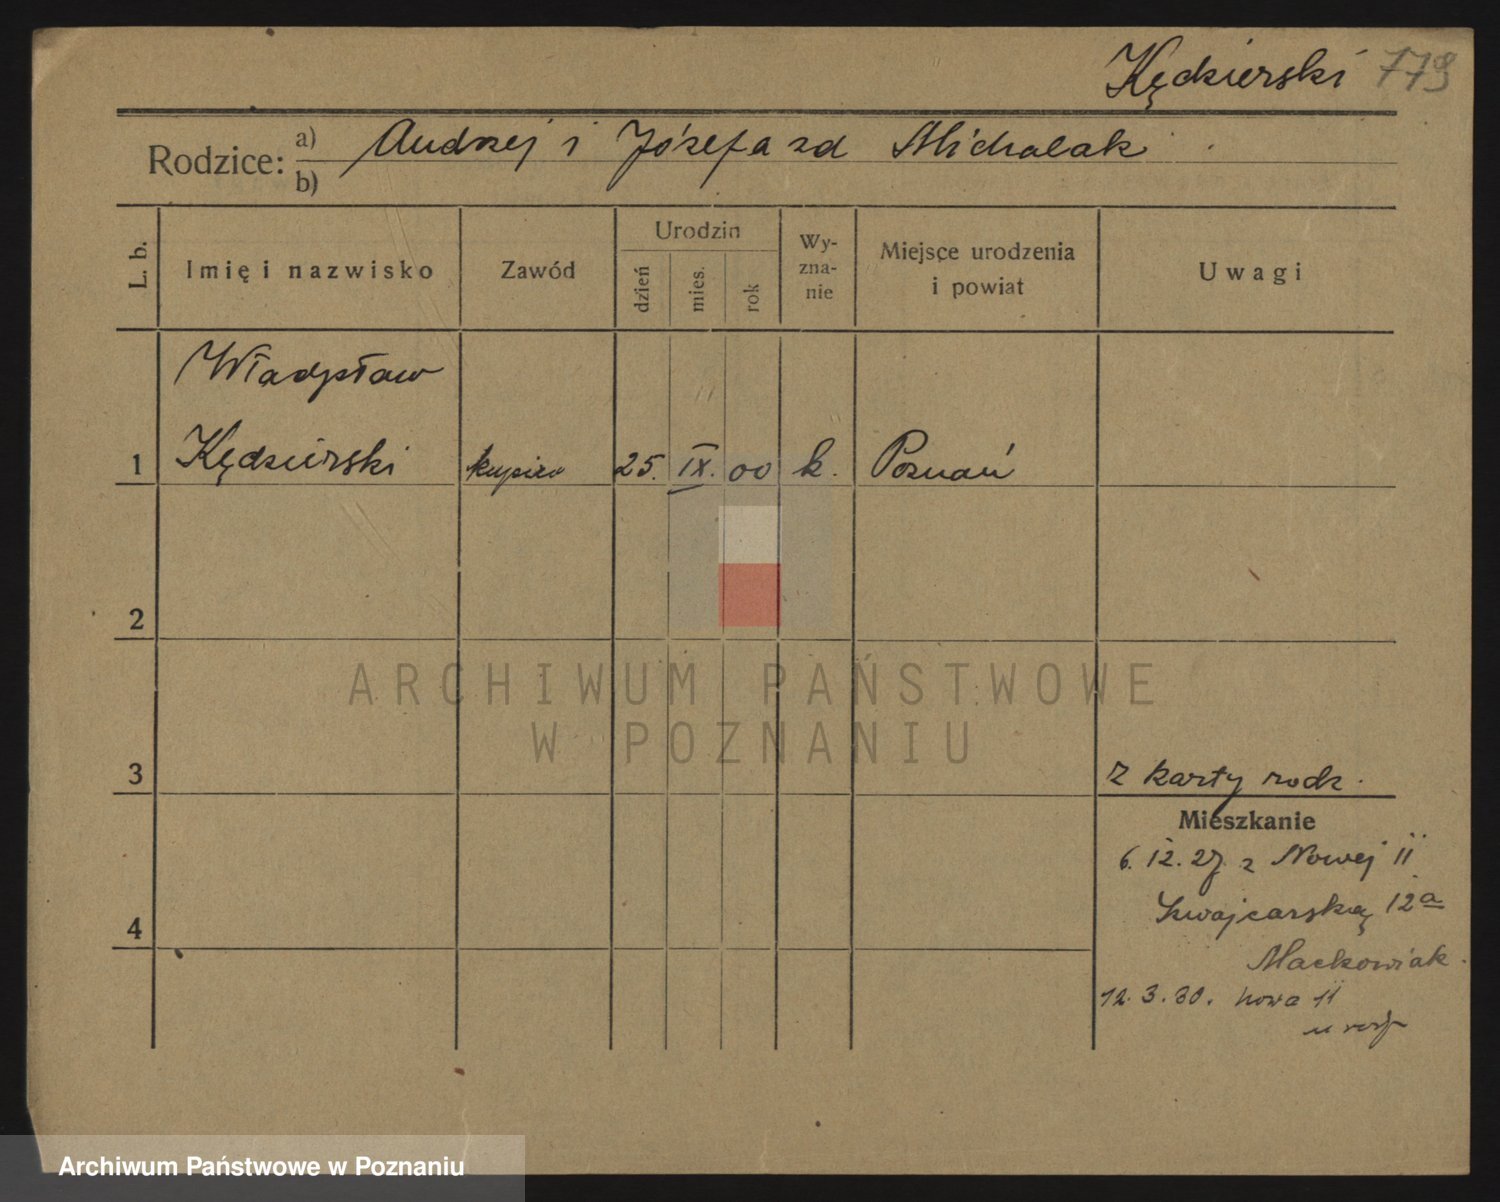 Kędzierski 779
Rodzice: a) Andrzej i Józefa zd Michalak
b)
L. b.
Imię i nazwisko
Zawód
Urodzin
dzień
mies.
rok
Wy-
zna-
nie
Miejsce urodzenia
i powiat
Uwagi
Władysław
1 Kędzierski kupiec 25. IX. 00 k. Poznań
2
ARCHIWUM PAŃSTWOWE
W POZNANIU
3
z karty rodz.
Mieszkanie
6. 12. 27 z Nowej 11
Szwajcarska 12a
4
Maćkowiak
12. 3. 30. Nowa 11
u
Archiwum Państwowe w Poznaniu